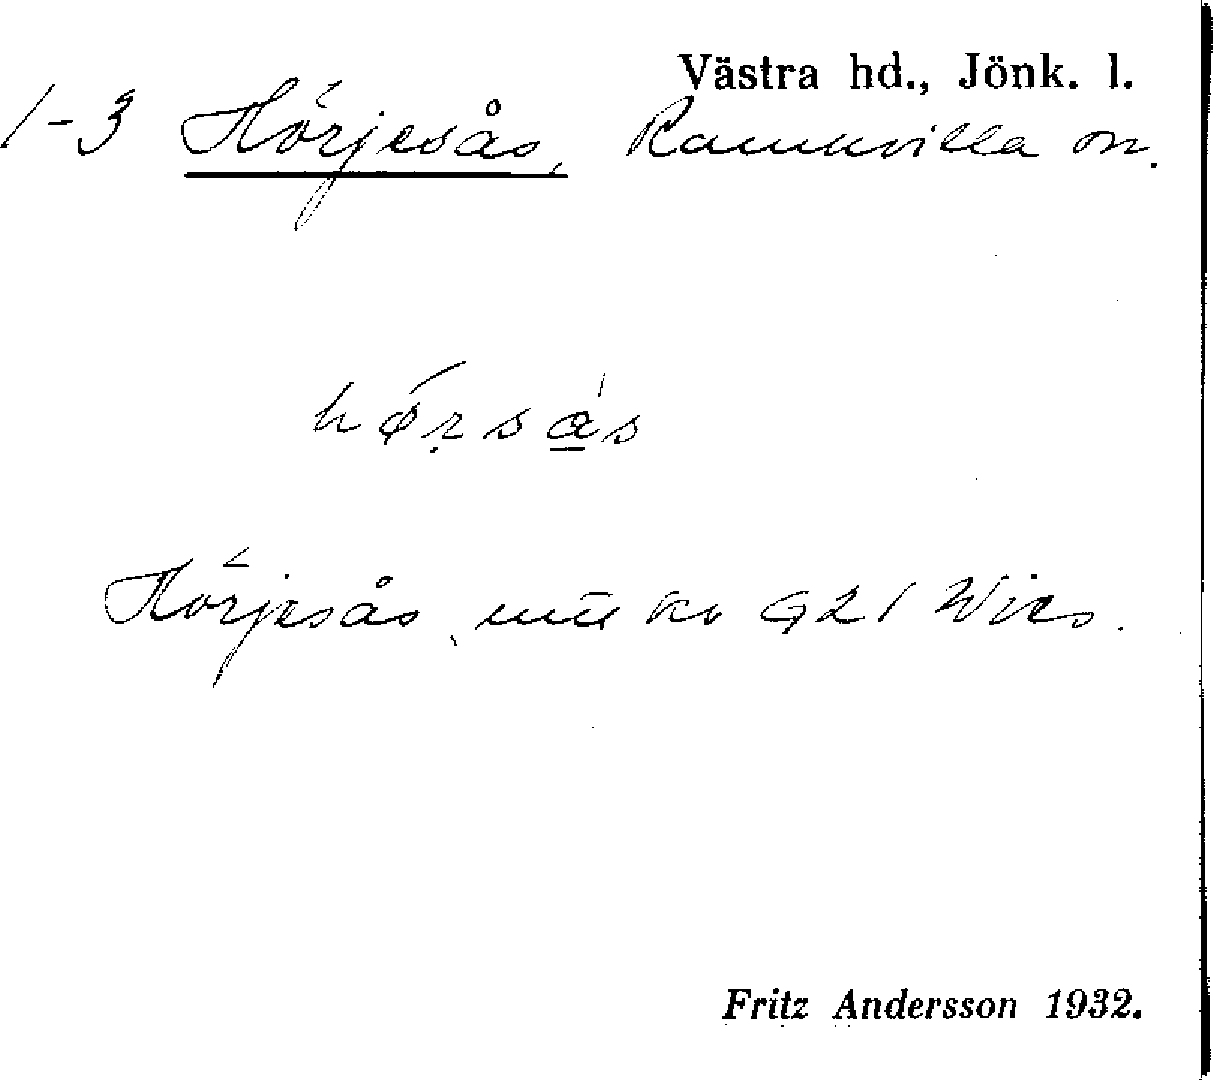 Västra hd., Jönk. l.
1-3 Hörjesås, Ramkvilla sn.
hørsås
Hörjesås, G21 Wies.
Fritz Andersson 1932.